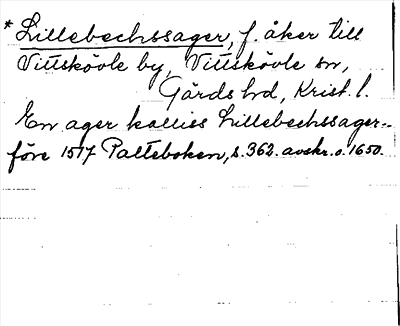 * Lillebechssager, f. åker till
Vittskövle by, Vittskövle sn,
Gärds hd, Krist. l.
En ager kalliss Lillebechssager.-
före 1517 Palteboken, s. 362. avskr. o. 1650.